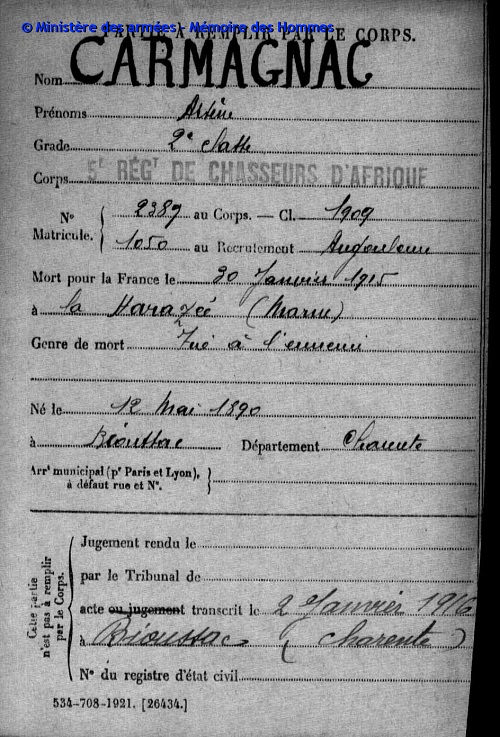 © Ministère des armées - Mémoire des Hommes
PARTIE À REMPLIR PAR LE CORPS.
Nom CARMAGNAC
Prénoms Arsène
Grade 2e classe
Corps 5e RÉGt DE CHASSEURS D'AFRIQUE
No Matricule. { 2389 au Corps. — Cl. 1909
1050 au Recrutement Angoulême
Mort pour la France le 30 Janvier 1915
à la Harazée (Marne)
Genre de mort Tué à l'ennemi
Né le 12 Mai 1890
à Bioussac Département Charente
Arrt municipal (pr Paris et Lyon), à défaut rue et No. }
Cette partie n'est pas à remplir par le Corps. {
Jugement rendu le
par le Tribunal de
acte ou jugement transcrit le 2 Janvier 1916
à Bioussac (Charente)
No du registre d'état civil
534-708-1921. [26434.]